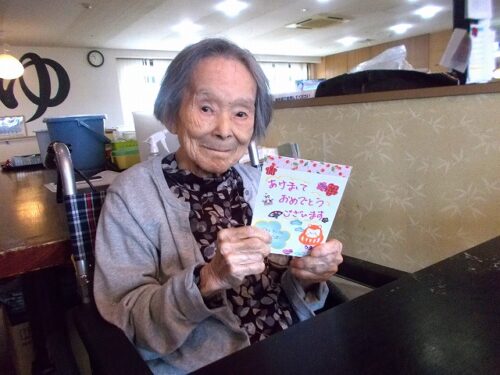 ゆ
あけまして
おめでとう
ございます